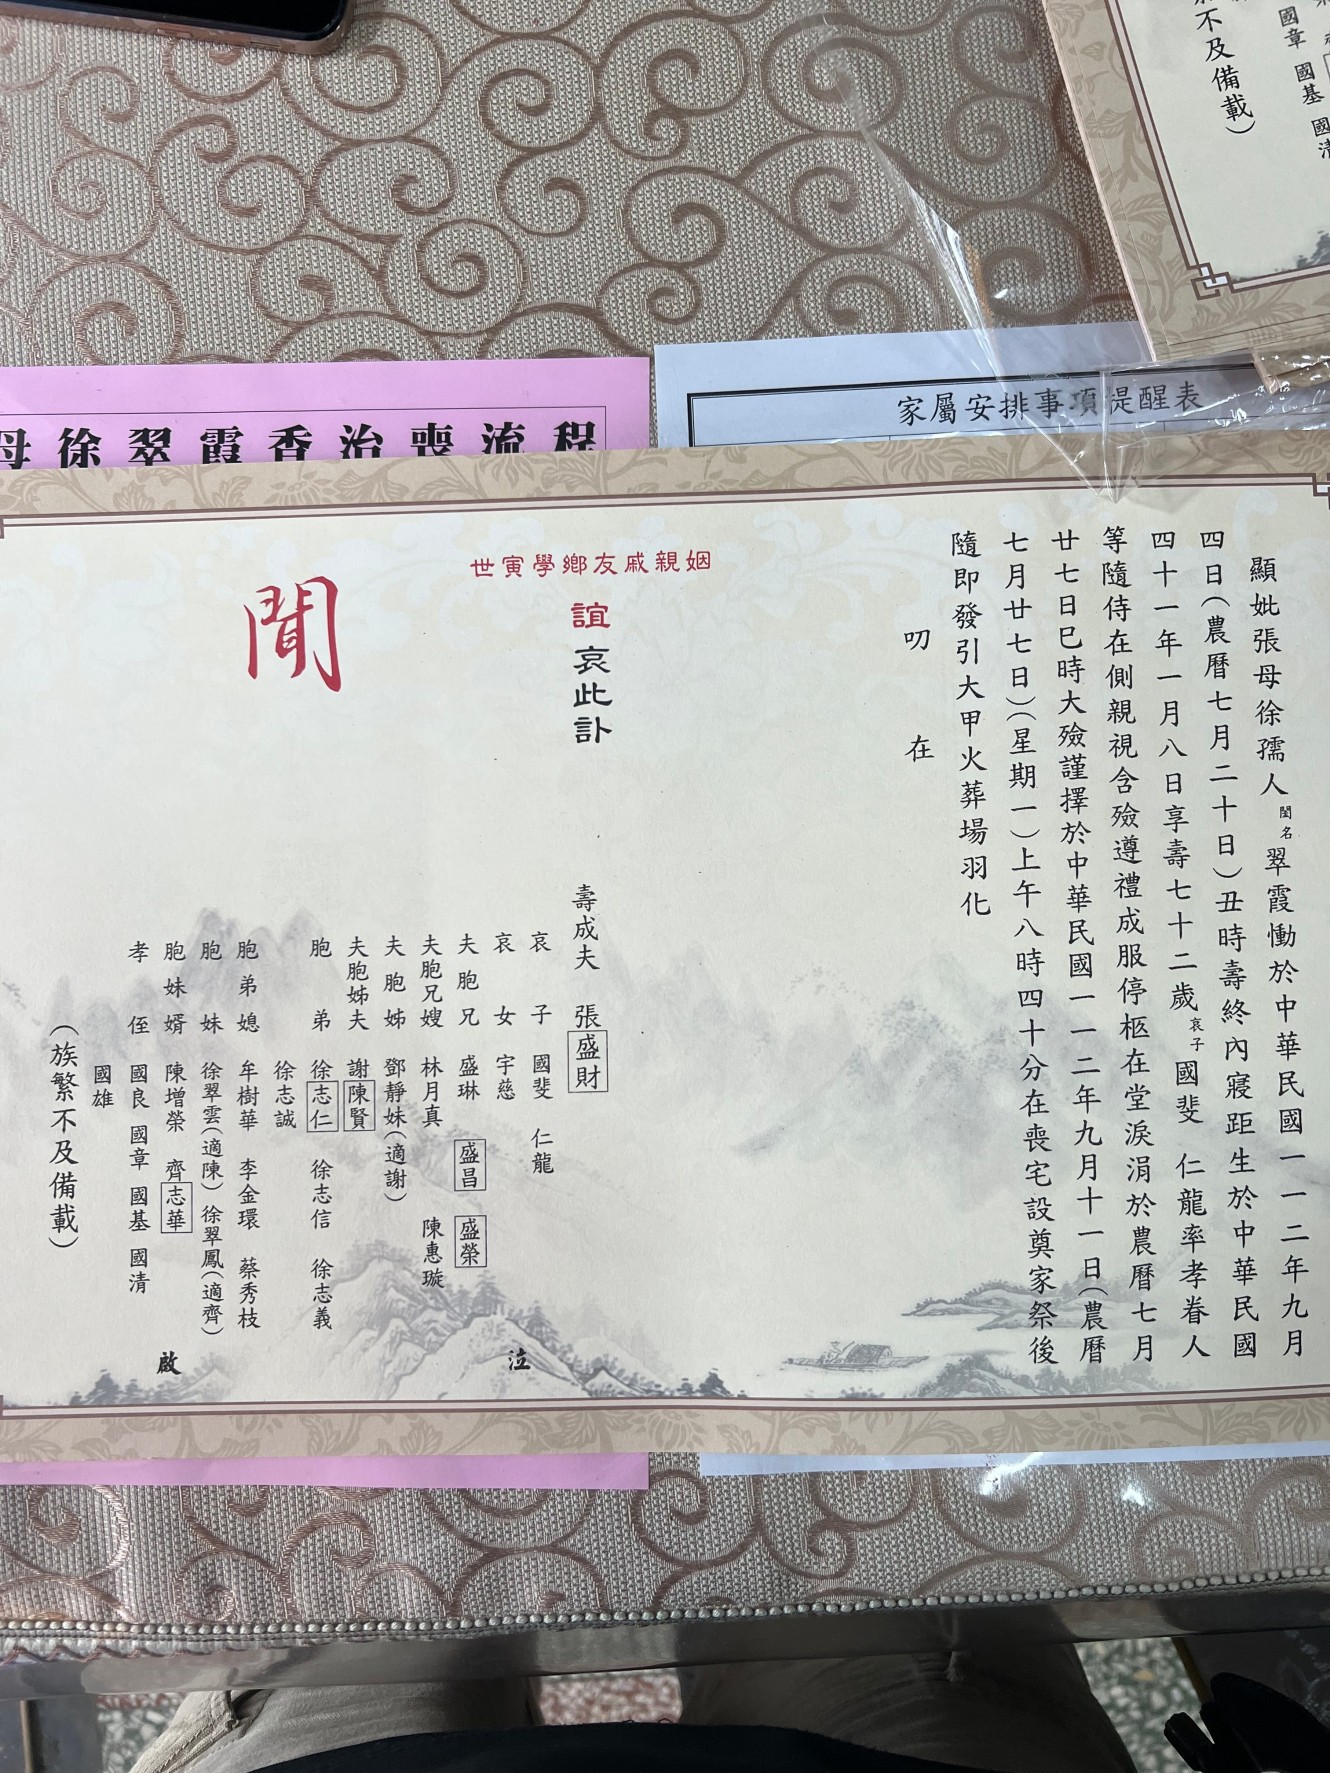 不及備載）
國章 國基 國清
母徐翠霞香治喪流程
家屬安排事項提醒表
顯妣張母徐孺人閨名翠霞慟於中華民國一一二年九月
四日（農曆七月二十日）丑時壽終內寢距生於中華民國
四十一年一月八日享壽七十二歲哀子國斐 仁龍率孝眷人
等隨侍在側親視含殮遵禮成服停柩在堂淚涓於農曆七月
廿七日巳時大殮謹擇於中華民國一一二年九月十一日（農曆
七月廿七日）（星期一）上午八時四十分在喪宅設奠家祭後
隨即發引大甲火葬場羽化
叨在
姻親戚友鄉學寅世
誼 哀此訃
聞
壽成夫 張盛財
哀子 國斐 仁龍
哀女 宇慈
夫胞兄 盛琳 盛昌 盛榮
夫胞兄嫂 林月真 陳惠璇
夫胞姊 鄧靜妹（適謝）
夫胞姊夫 謝陳賢
胞弟 徐志仁 徐志信 徐志義
徐志誠
胞弟媳 牟樹華 李金環 蔡秀枝
胞妹 徐翠雲（適陳） 徐翠鳳（適齊）
胞妹婿 陳增榮 齊志華
孝侄 國良 國章 國基 國清
國雄
（族繁不及備載）
泣
啟